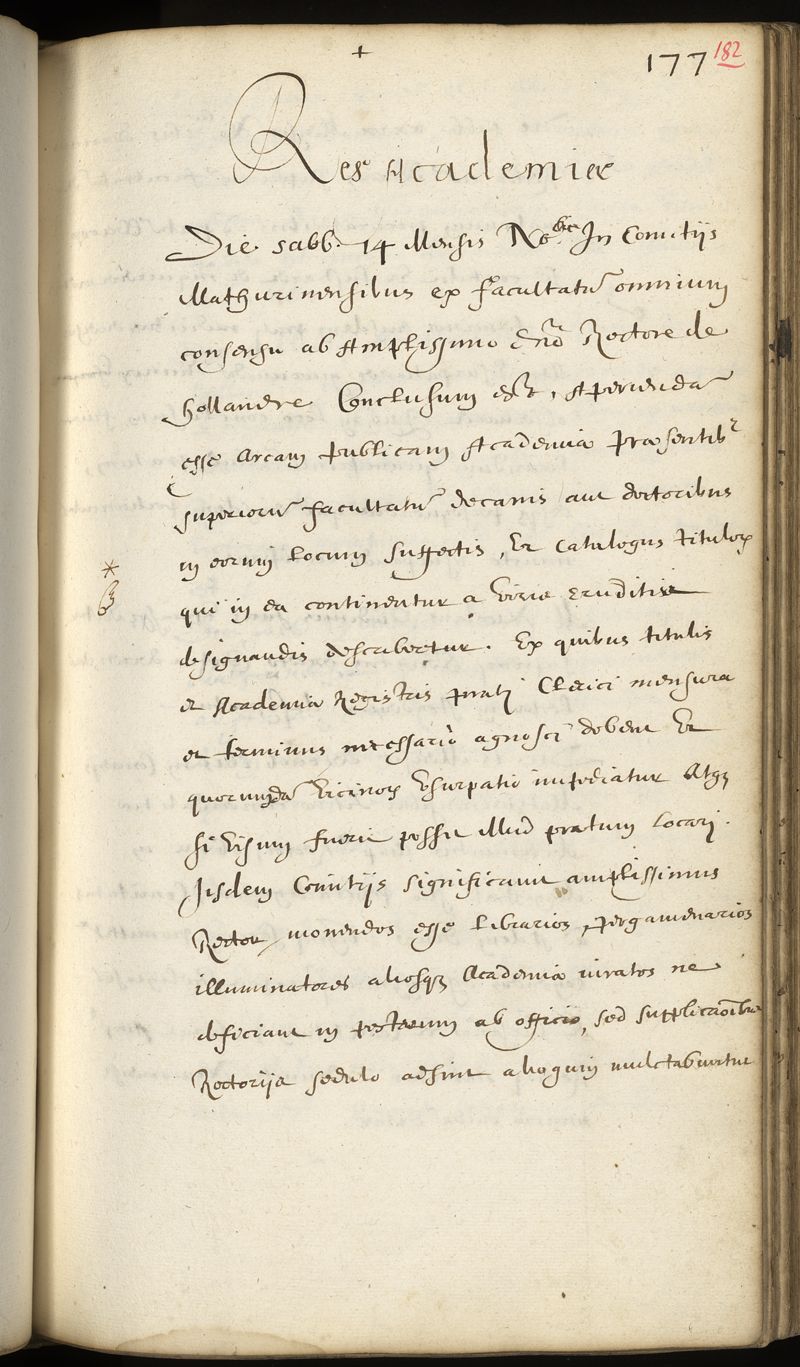 +
177 182
Res Academiæ
Die sabb. 14 Mensis No.bris In Comitijs
Mathurinensibus ex facultatū omnium
consensu ab Amplissimo dño Rectore de
Hollandre Conclusum est, Aperiendā
esse Arcam publicam Academiæ præsentib9
superiorū facultatū decanis aut doctoribus
in eorum locum suffectis, Et catalogus titulorꝝ
qui in ea continentur a viris eruditis
designandis describeretur. Ex quibus titulis
et Academiæ Registris prati Clerici mensura
et terminus necessariò agnosci debent Et
quorumdā vicinorꝝ vsurpatio impediatur Atqꝫ
si visum fuerit possit illud pratum locari.
Iisdem Comitijs significauit amplissimus
Rector, monendos esse librarios, pergamenarios
illuminatores aliosqꝫ Academiæ iuratos ne
deficiant in posterum ab officio, sed supplicaōibus
Rectorijs sedulo adsint alioquin mulctabuntur